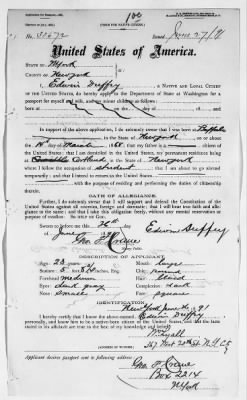 No. 30672
Issued June 27/91
United States of America.
STATE OF NYork
COUNTY OF New york
I, Edwin Duffey, A NATIVE AND LOYAL CITIZEN
OF THE UNITED STATES, do hereby apply to the Department of State at Washington for a
passport for myself and wife, and my minor children as follows:
In support of the above application, I do solemnly swear that I was born at
in the State of New york on or about the
day of March, 1868 that I am a native-born
citizen of the United States, that I am domiciled in the United States, my permanent residence being
at Cortland in the State of New york
where I follow the occupation of student; that I am about to go abroad
temporarily; and that I intend to return to the United States
with the purpose of residing and performing the duties of citizenship
therein.
OATH OF ALLEGIANCE.
Further, I do solemnly swear that I will support and defend the Constitution of the
United States against all enemies, foreign and domestic; that I will bear true faith and allegiance
to the same; and that I take this obligation freely, without any mental reservation or purpose
of evasion: So help me God.
Sworn to before me this 26th day
of June 1891
Edwin Duffey
DESCRIPTION OF APPLICANT.
Age: 23 years
Stature: 5 feet
Forehead: medium
Eyes: dark gray
Nose: small
Chin:
Hair:
Complexion: dark
Face: square
IDENTIFICATION.
New York June 1891
I hereby certify that I know the above named Edwin Duffey
personally, and know him to be a native-born citizen of the United States, and that the facts
stated in his affidavit are true to the best of my knowledge and belief.
Applicant desires passport sent to following address:
Box 2214
NYork